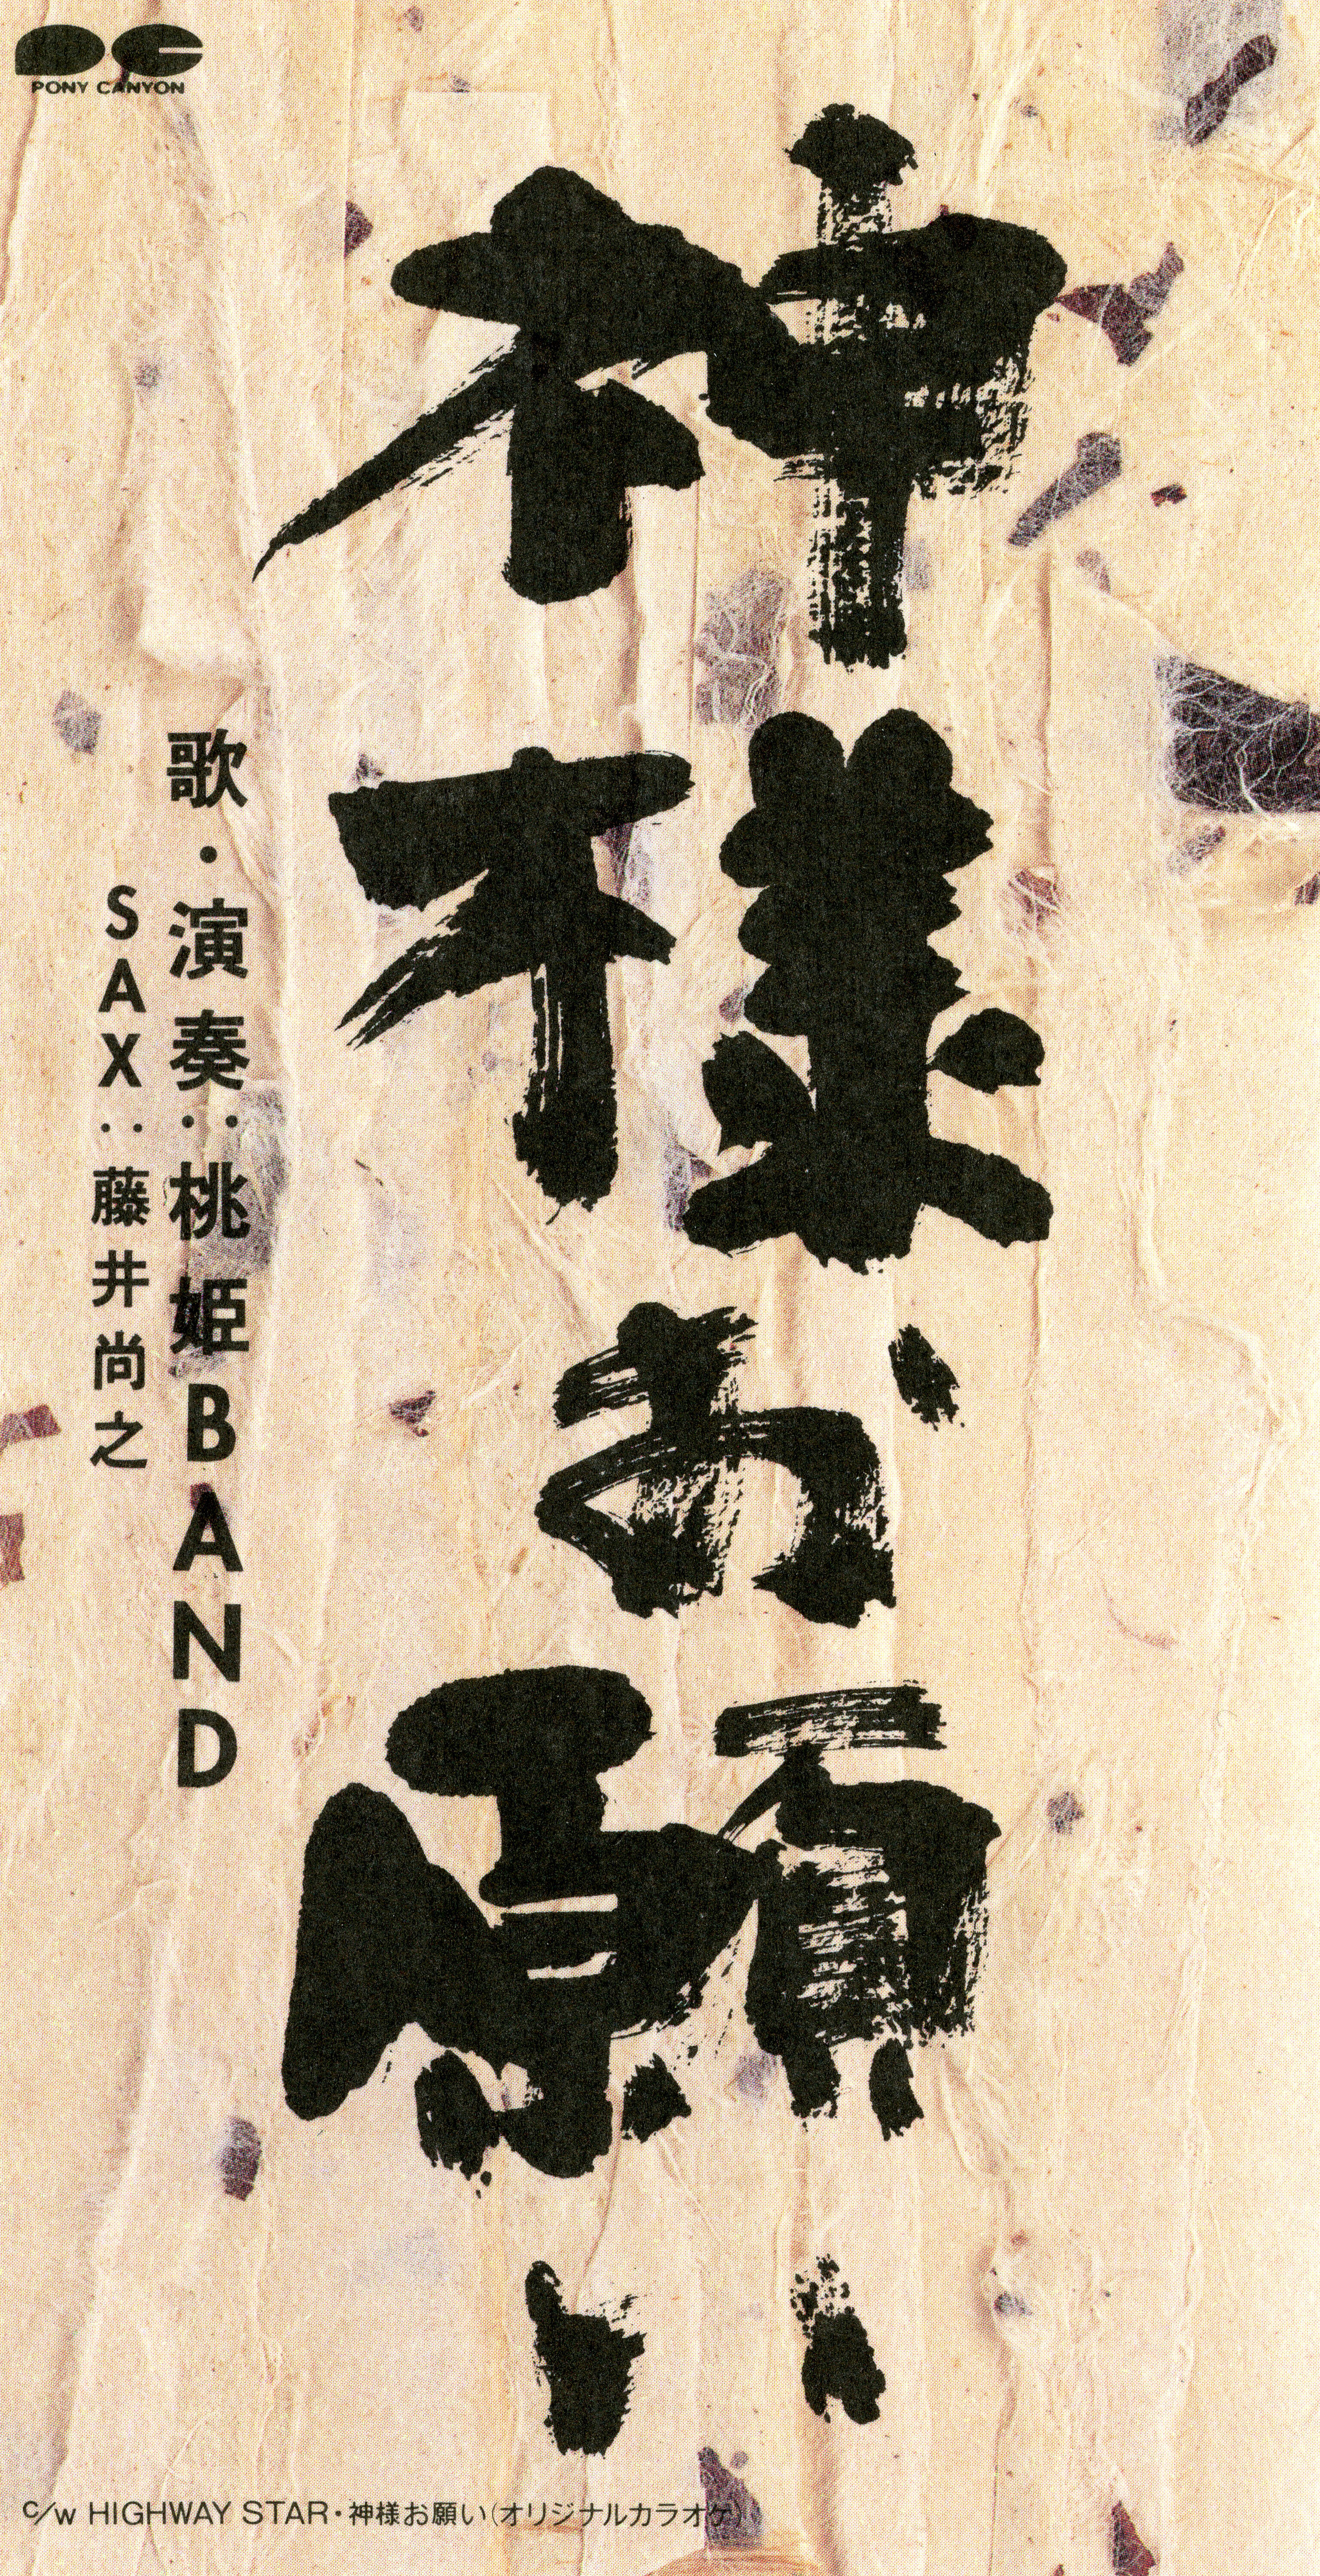 PONY CANYON
神様お願い
歌・演奏：桃姫BAND
SAX：藤井尚之
c/w HIGHWAY STAR・神様お願い(オリジナルカラオケ)